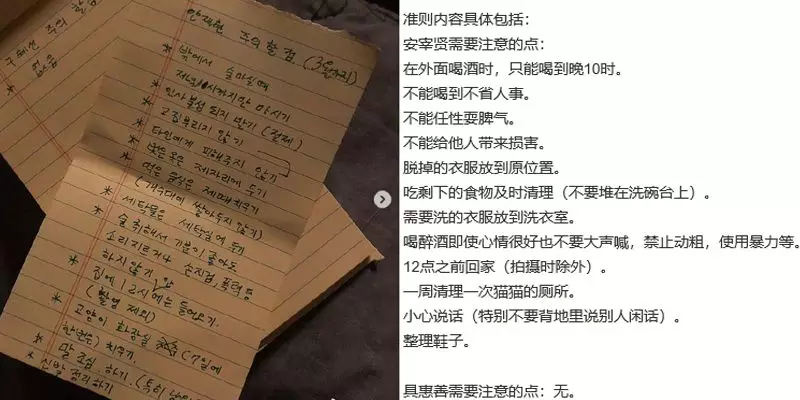 구혜선 주의
없음
안재현 주의 할 점 (3월까지)
* 밖에서 술마실때
저녁10시까지만 마시기
* 인사불성 되지말기 (절제)
* 고집부리지 않기
* 타인에게 피해주지 않기
* 벗은 옷은 제자리에 두기
* 먹은 음식은 제때 치우기
(개수대에 쌓아두지 않기)
* 세탁물은 세탁실에 두기
* 술 취해서 기분이 좋아도
소리지르거나 손찌검, 폭력 등
하지않기
* 집에 12시 안에는 들어오기.
(촬영 제외)
* 고양이 화장실 (7일에
한번은) 치우기.
* 말 조심 하기. (특히
* 신발 정리하기
准则内容具体包括：
安宰贤需要注意的点：
在外面喝酒时，只能喝到晚10时。
不能喝到不省人事。
不能任性耍脾气。
不能给他人带来损害。
脱掉的衣服放到原位置。
吃剩下的食物及时清理（不要堆在洗碗台上）。
需要洗的衣服放到洗衣室。
喝醉酒即使心情很好也不要大声喊，禁止动粗，使用暴力等。
12点之前回家（拍摄时除外）。
一周清理一次猫猫的厕所。
小心说话（特别不要背地里说别人闲话）。
整理鞋子。
具惠善需要注意的点：无。